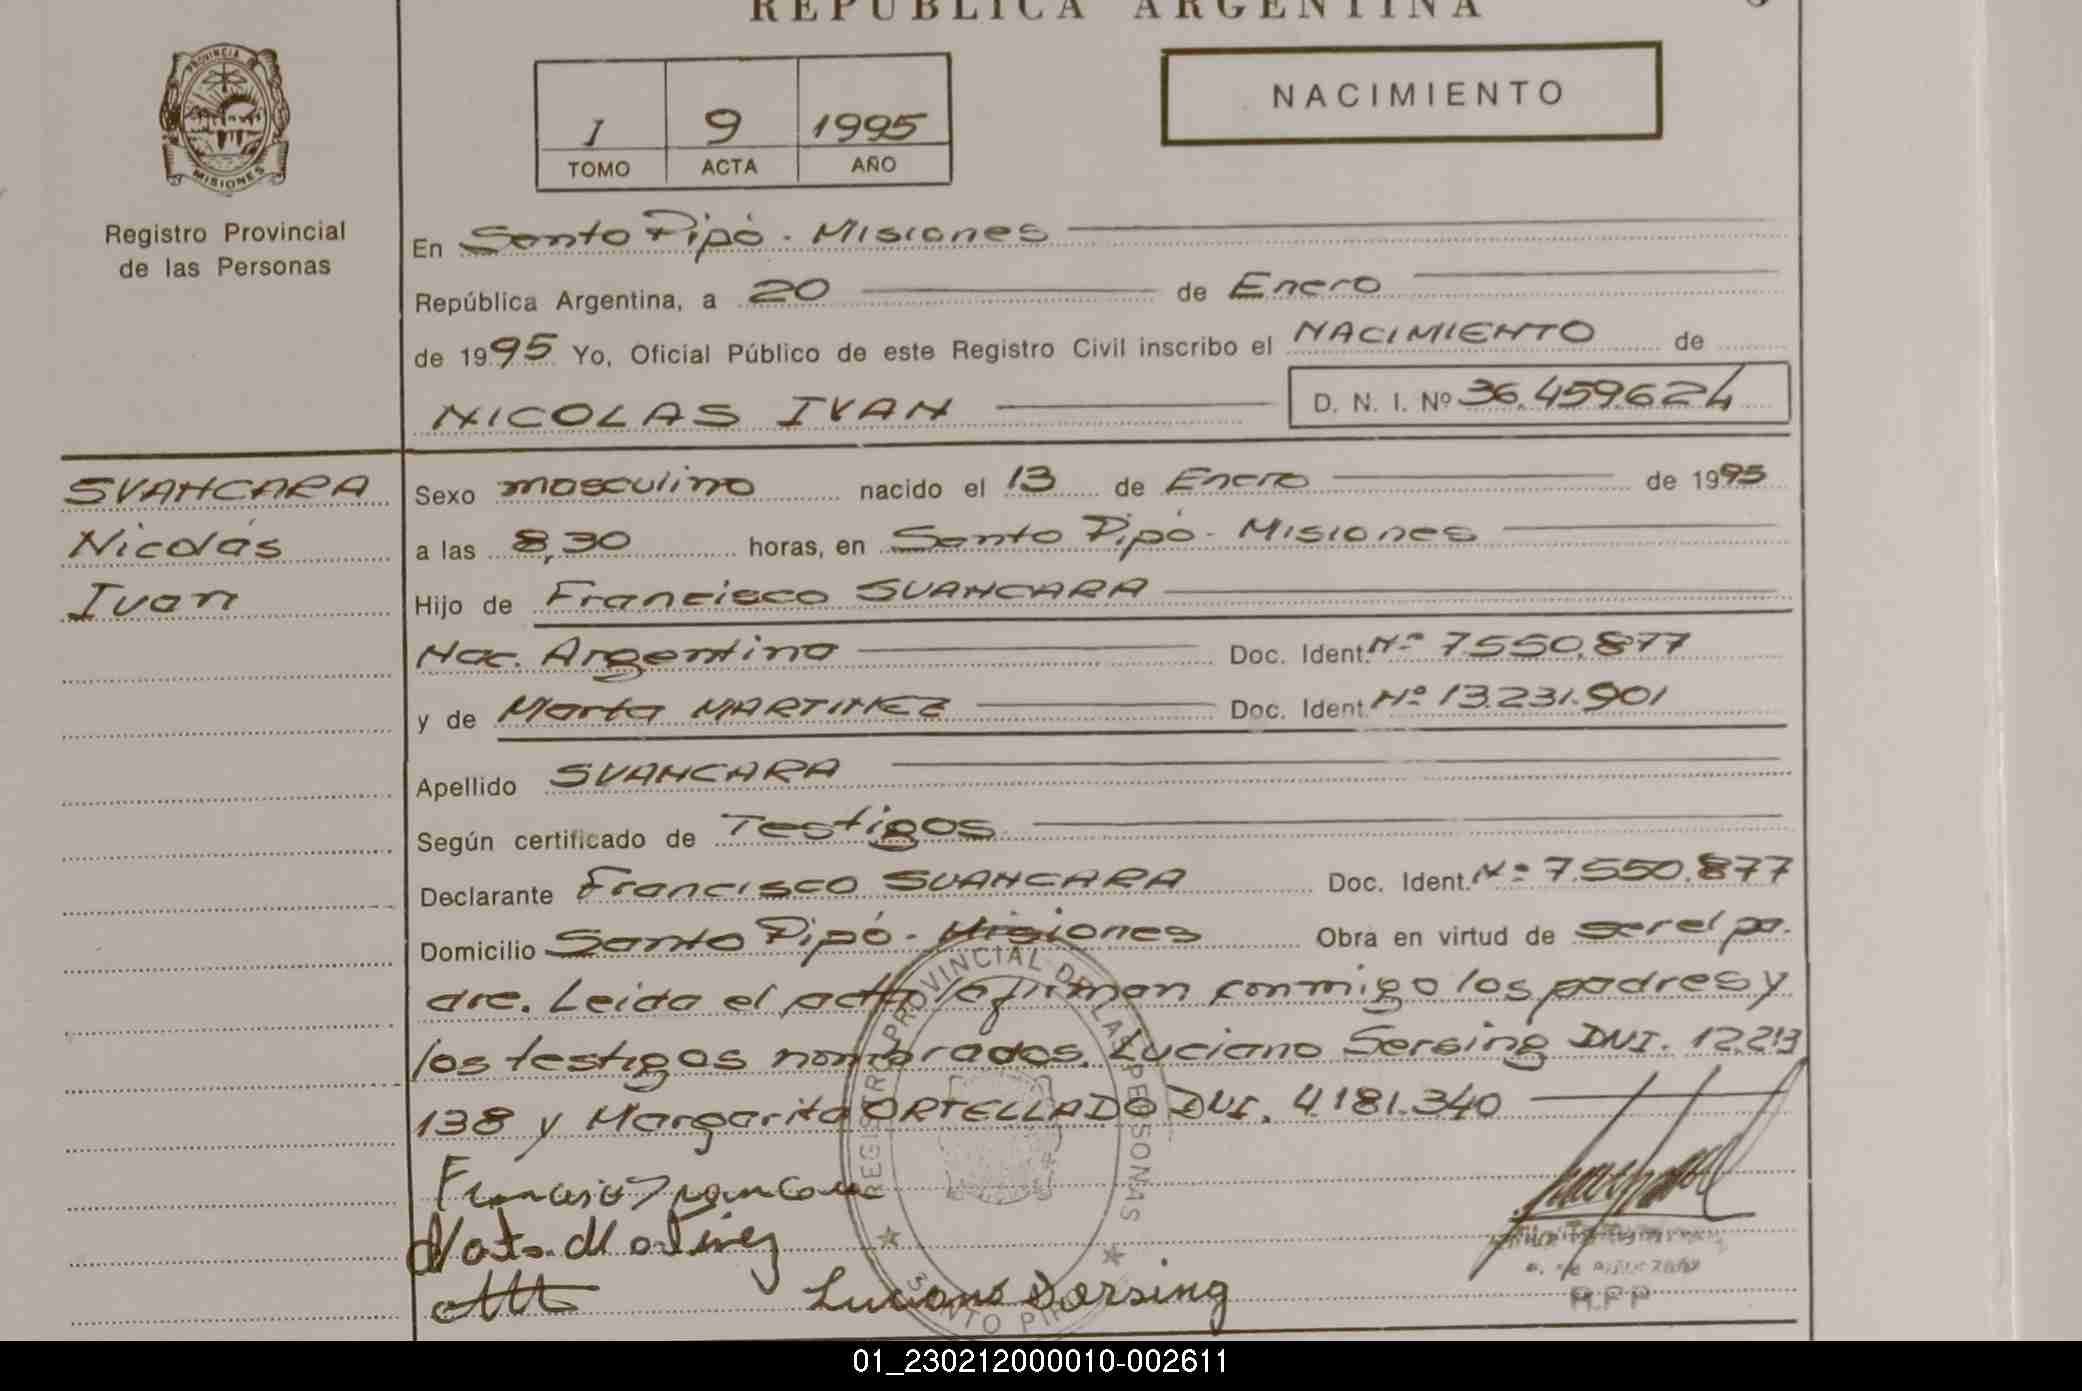 REPUBLICA ARGENTINA
PROVINCIA DE
MISIONES
Registro Provincial
de las Personas
I 9 1995
TOMO ACTA AÑO
NACIMIENTO
En Santo Pipó - Misiones
República Argentina, a 20 de Enero
de 1995 Yo, Oficial Público de este Registro Civil inscribo el NACIMIENTO de
NICOLAS IVAN D. N. I. Nº 36.459.624
SVANCARA
Nicolás
Ivan
Sexo masculino nacido el 13 de Enero de 1995
a las 8,30 horas, en Santo Pipó - Misiones
Hijo de Francisco SVANCARA
Nac. Argentina Doc. Ident. Nº 7.550.877
y de Marta MARTINEZ Doc. Ident. Nº 13.231.901
Apellido SVANCARA
Según certificado de Testigos
Declarante Francisco SVANCARA Doc. Ident. Nº 7.550.877
Domicilio Santo Pipó - Misiones Obra en virtud de ser el pa-
dre. Leida el acta la firman conmigo los padres y
los testigos nombrados. Luciano Sersing DNI. 12.213
138 y Margarita ORTELLADO DNI. 4.181.340
REGISTRO PROVINCIAL DE LAS PERSONAS
SANTO PIPO
Francisco Svancara
Marta Martinez
Luciano Sersing
R.P.P
01_230212000010-002611